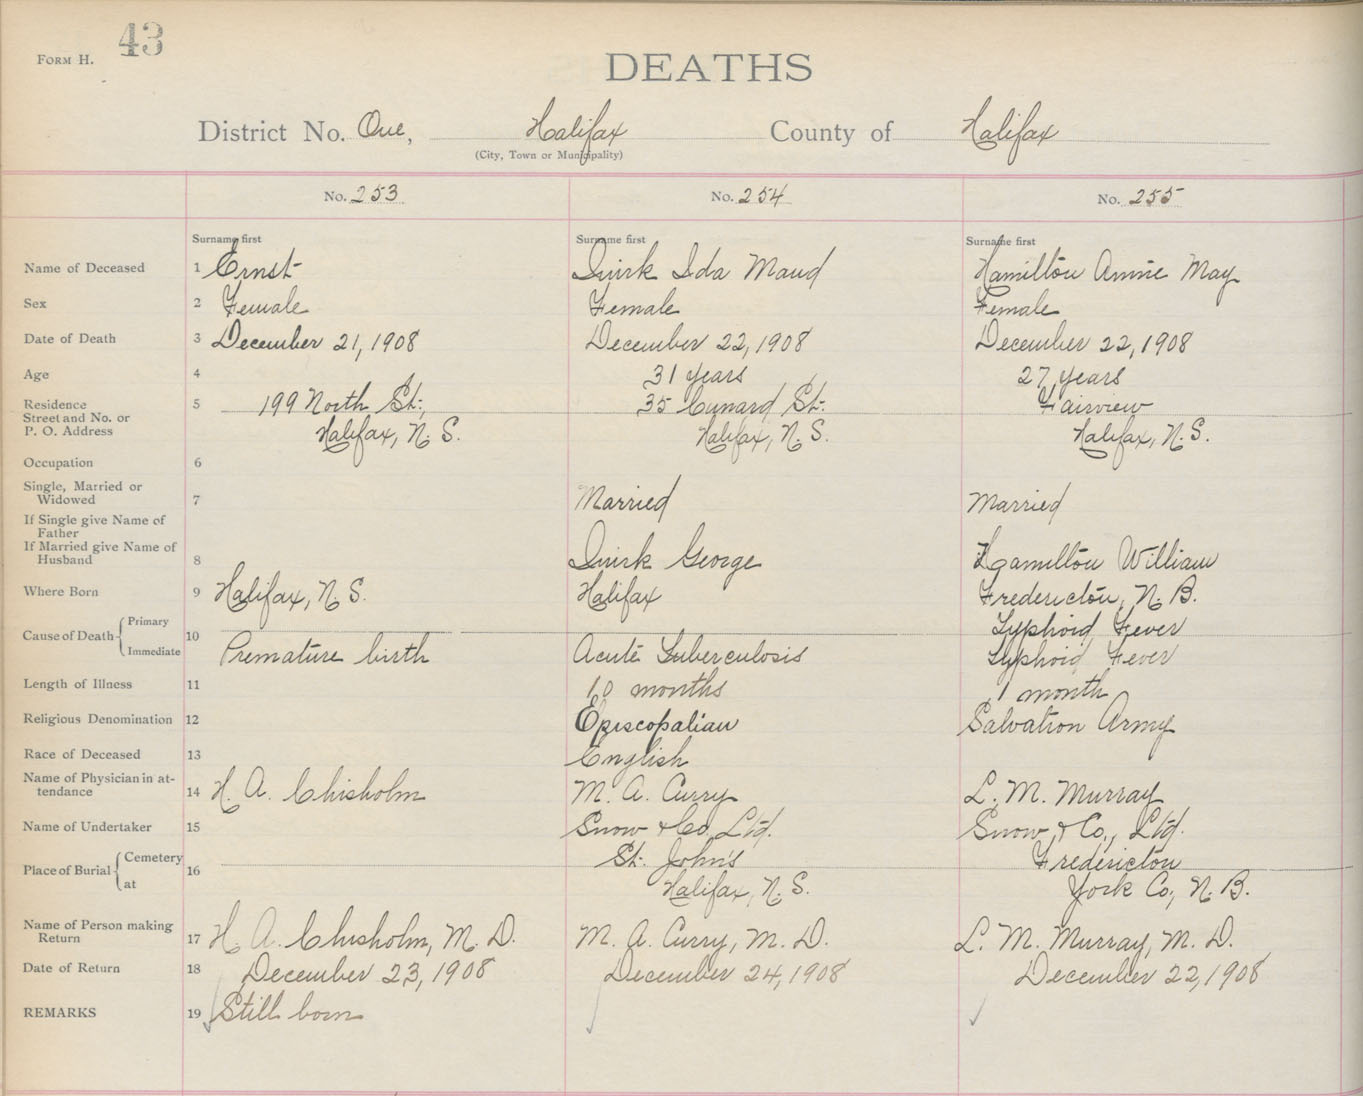 FORM H. 43
DEATHS
District No. One, Halifax County of Halifax
(City, Town or Municipality)
No. 253 No. 254 No. 255
Surname first Surname first Surname first
Name of Deceased 1 Ernst Quirk Ida Maud Hamilton Annie May
Sex 2 Female Female Female
Date of Death 3 December 21, 1908 December 22, 1908 December 22, 1908
Age 4 31 years 27 years
Residence 5 199 North St., 35 Cunard St. Fairview
Street and No. or
P. O. Address Halifax, N. S. Halifax, N. S. Halifax, N. S.
Occupation 6
Single, Married or
Widowed 7 Married Married
If Single give Name of
Father
If Married give Name of
Husband 8 Quirk George Hamilton William
Where Born 9 Halifax, N. S. Halifax Fredericton, N. B.
Primary Typhoid Fever
Cause of Death 10
Immediate Premature birth Acute Tuberculosis Typhoid Fever
Length of Illness 11 10 months 1 month
Religious Denomination 12 Episcopalian Salvation Army
Race of Deceased 13 English
Name of Physician in at-
tendance 14 H. A. Chisholm M. A. Curry L. M. Murray
Name of Undertaker 15 Snow & Co. Ltd. Snow, & Co., Ltd.
Cemetery St. John's Fredericton
Place of Burial 16
at Halifax, N. S. York Co., N. B.
Name of Person making
Return 17 H. A. Chisholm, M. D. M. A. Curry, M. D. L. M. Murray, M. D.
Date of Return 18 December 23, 1908 December 24, 1908 December 22, 1908
REMARKS 19 Still born